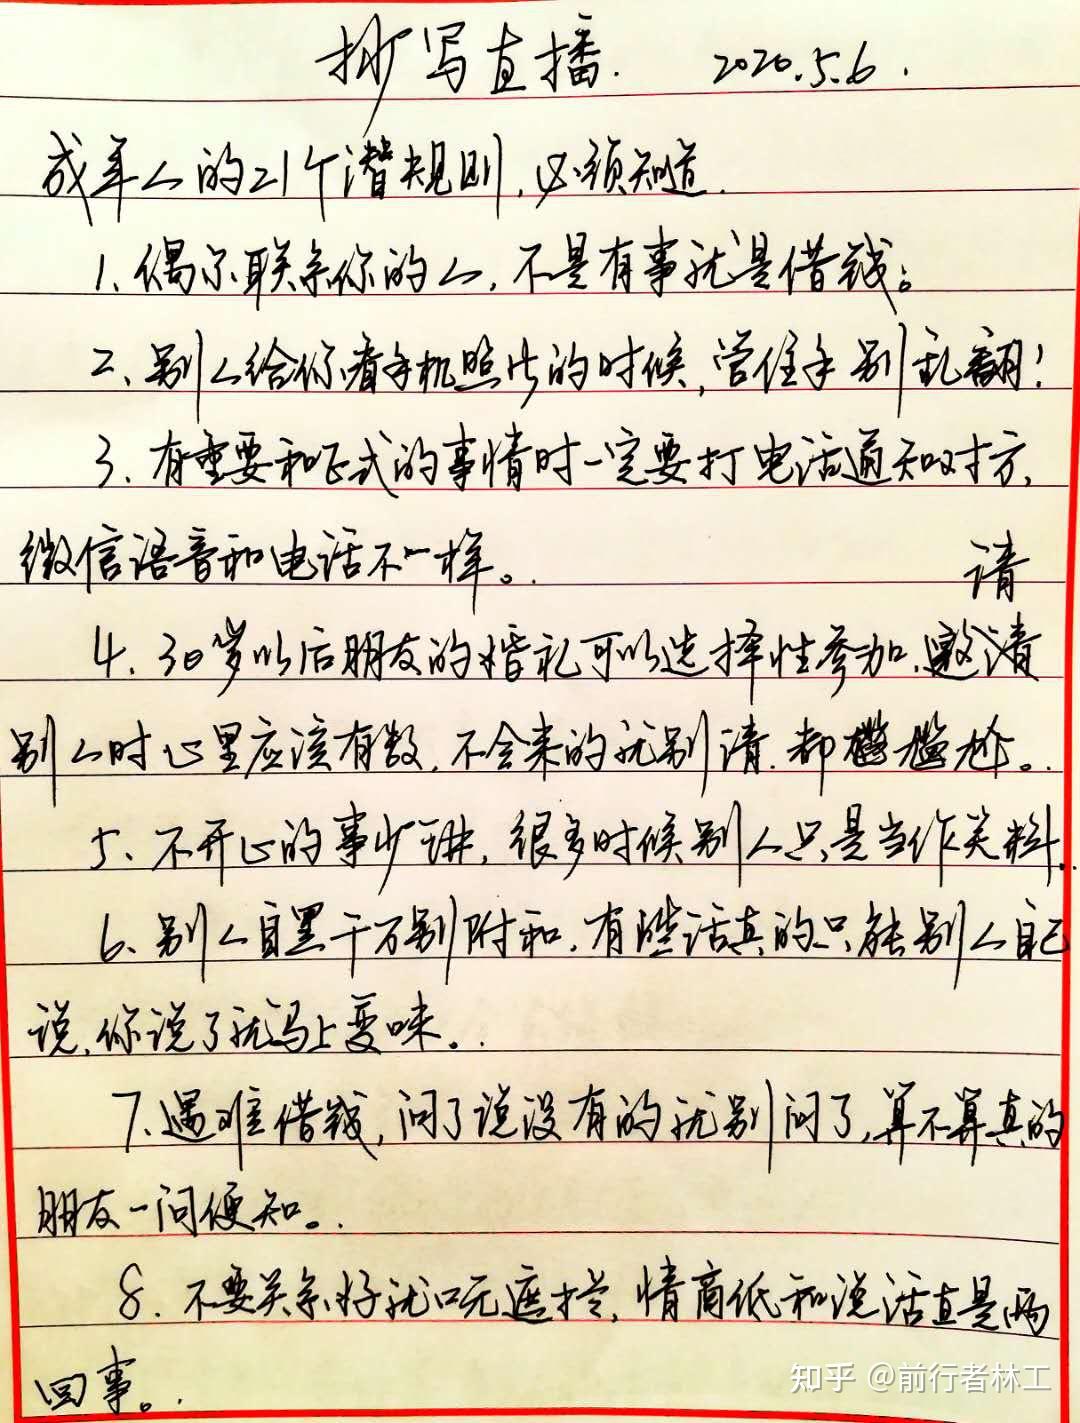 抄写直播. 2020.5.6.
成年人的21个潜规则,必须知道.
1、偶尔联系你的人,不是有事就是借钱;
2、别人给你看手机照片的时候,管住手别乱翻!
3、有重要和正式的事情时一定要打电话通知对方,
微信语音和电话不一样。
请
4、30岁以后朋友的婚礼可以选择性参加,邀请
别人时心里应该有数,不会来的就别请,都尴尬。
5、不开心的事少讲,很多时候别人只是当作笑料.
6、别人自黑千万别附和,有些话真的只能别人自己
说,你说了就马上变味。
7、遇难借钱,问了说没有的就别问了,算不算真的
朋友一问便知。
8、不要关系好就口无遮拦,情商低和说话直是两
回事。
知乎 @前行者林工